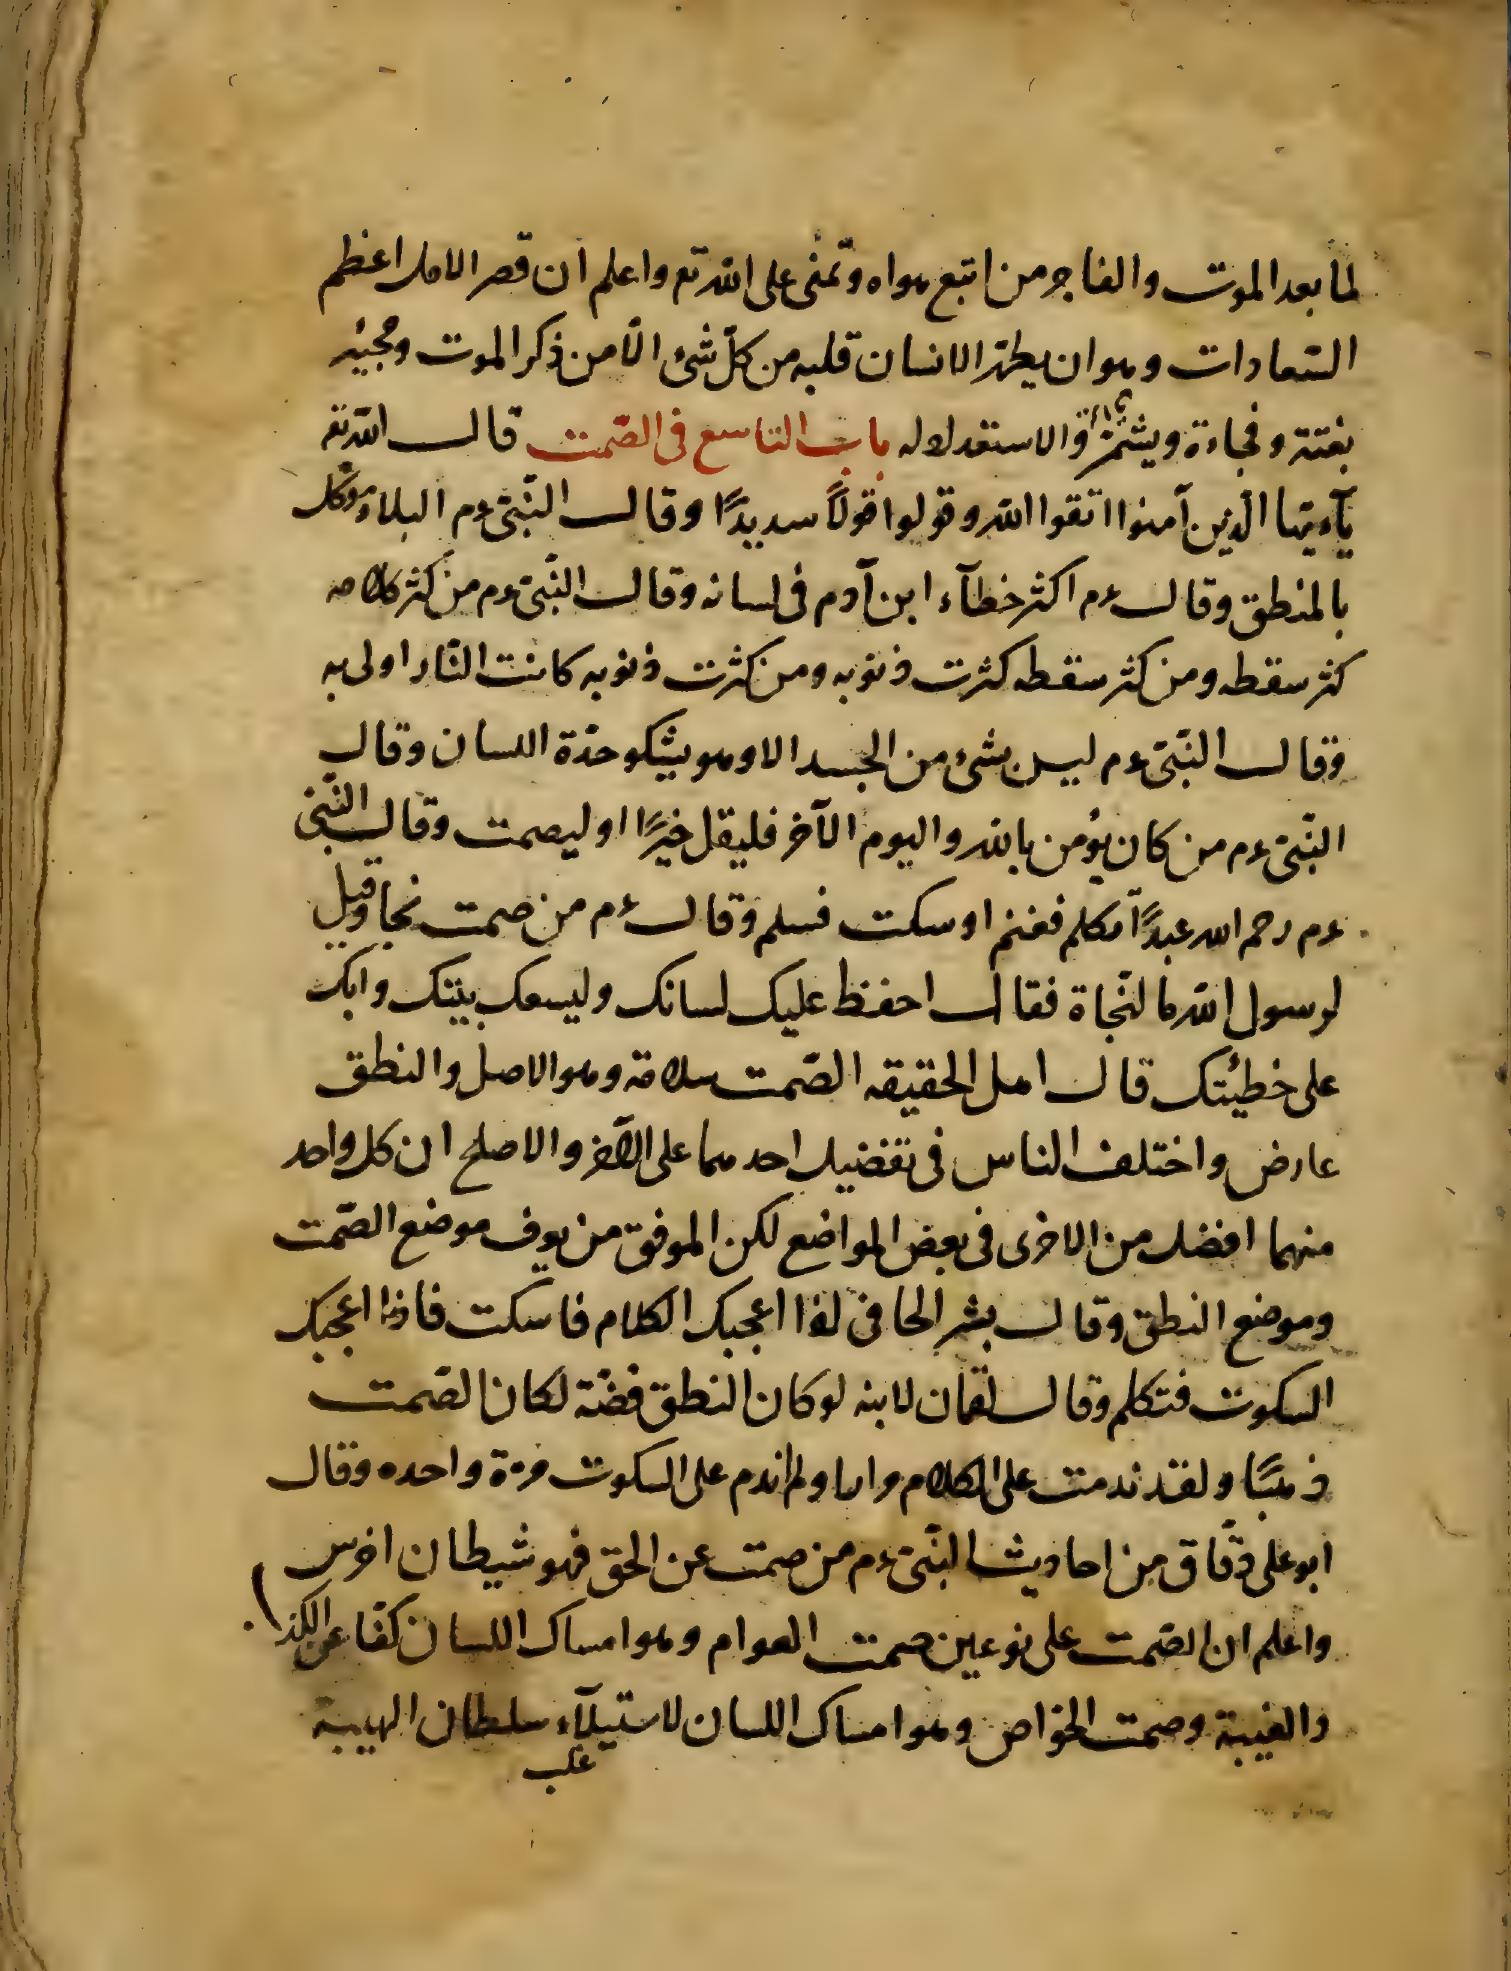 لما بعد الموت والفاجر من اتبع هواه وتمنى على الله تع واعلم ان قصر الامل اعظم
السّعادات وهو ان يطهّر الانسان قلبه من كلّ شئ الّا من ذكر الموت ومجيئه
بغتة وفجاءة ويشمّر والاستعداد له باب التاسع فى الصّمت قال الله تع
يآءيّها الّذين آمنوا اتقوا الله وقولوا قولاً سديدًا وقال النّبىّ عم البلاء موكّل
بالمنطق وقال عم اكثر خطآء ابن آدم فى لسانه وقال النّبىّ عم من كثر كلامه
كثر سقطه ومن كثر سقطه كثرت ذنوبه ومن كثرت ذنوبه كانت النّار اولى به
وقال النّبىّ عم ليس شئ من الجسد الا وهو يشكو حدّة اللسان وقال
النّبىّ عم من كان يؤمن بالله واليوم الآخر فليقل خيرًا او ليصمت وقال النّبىّ
عم رحم الله عبدًا تكلم فغنم او سكت فسلم وقال عم من صمت نجا وقيل
لرسول الله ما لنّجاة فقال احفظ عليك لسانك وليسعك بيتك وابك
على خطيئتك قال اهل الحقيقه الصّمت سلامة وهو الاصل والنطق
عارض واختلف الناس فى تفضيل احدهما على الآخر والاصلح ان كل واحد
منهما افضل من الاخرى فى بعض المواضع لكن الموفق من يعرف موضع الصّمت
وموضع النطق وقال بشر الحافى اذا اعجبك الكلام فاسكت فاذا اعجبك
السكوت فتكلم وقال لقمان لابنه لو كان النطق فضّة لكان الصّمت
ذهبًا ولقد ندمت على الكلام مرارا ولم اندم على السكوت مرة واحده وقال
ابو على دقّاق من احاديث النّبىّ عم من صمت عن الحق فهو شيطان اخرس
واعلم ان الصّمت على نوعين صمت العوام وهو امساك اللسان كفّا عن الكذب
والغيبة وصمت الخوّاص وهو امساك اللسان لاستيلآء سلطان الهيبة